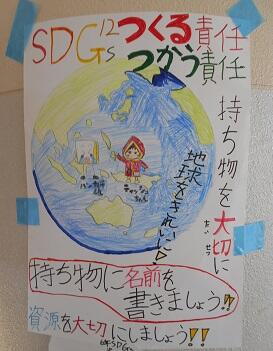 SDGs 12 つくる責任
つかう責任
持ち物を大切に
たいせつ
地球をきれいに!
持ち物に名前を
書きましょう!!
資源を大切にしましょう!!